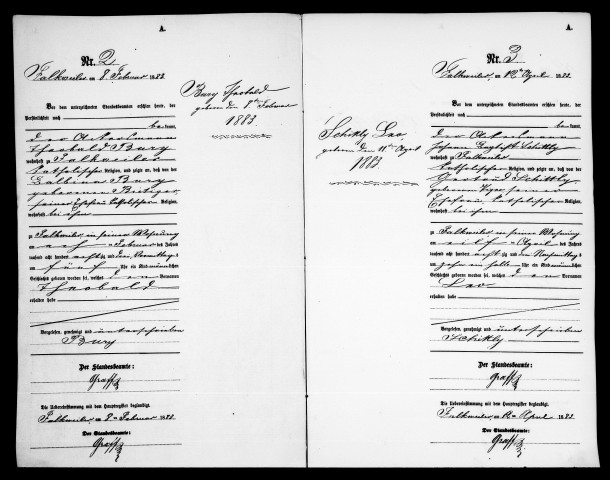 A.
Nr. 2
Falkweiler, am 8. Februar 1883.
Vor dem unterzeichneten Standesbeamten erschien heute, der
Persönlichkeit nach
bekannt,
der Ackersmann
Theobald Bury
wohnhaft zu Falkweiler
katholischer Religion, und zeigte an, daß von der
Balbina Bury
geborenen
seiner Ehefrau katholischer Religion,
wohnhaft bei ihm
zu Falkweiler in seiner Wohnung
am Februar des Jahres
tausend acht hundert achtzig und drei Vormittags
um fünf Uhr ein Kind männlichen
Geschlechts geboren worden sei, welches den Vornamen
Theobald
erhalten habe
Vorgelesen, genehmigt und unterschrieben
Bury
Der Standesbeamte:
Graff
Die Uebereinstimmung mit dem Hauptregister beglaubigt.
Falkweiler, am 8. Februar 1883.
Der Standesbeamte:
Graff
Bury Theobald
geboren den 8ten Februar
1883.
A.
Nr. 3
Falkweiler, am 12ten April 1883.
Vor dem unterzeichneten Standesbeamten erschien heute, der
Persönlichkeit nach
bekannt,
der Ackersmann
Johann Baptist Schickly
wohnhaft zu Falkweiler
katholischer Religion, und zeigte an, daß von der
Gertrud Schickly
geborenen seiner
Ehefrau, katholischer Religion,
wohnhaft bei ihm
zu Falkweiler in seiner Wohnung
am elf April des Jahres
tausend acht hundert achtzig und drei Nachmittags
um zehn ein halb Uhr ein Kind männlichen
Geschlechts geboren worden sei, welches den Vornamen
Leo
erhalten habe
Vorgelesen, genehmigt und unterschrieben
Schickly
Der Standesbeamte:
Graff
Die Uebereinstimmung mit dem Hauptregister beglaubigt.
Falkweiler, am 12. April 1883.
Der Standesbeamte:
Graff
Schickly Leo
geboren den 11ten April
1883